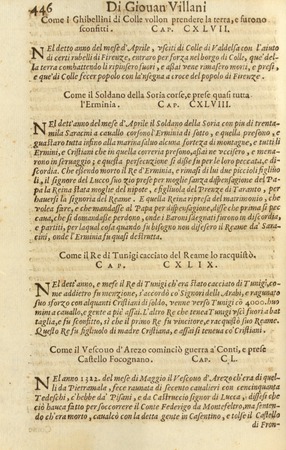 446
Di Giovan Villani
Come i Ghibellini di Colle vollon prendere la terra, e furono
sconfitti. CAP. CXLVII.
NEl detto anno del mese d'Aprile, usciti di Colle di Valdelsa con l'aiuto
di certi rubelli di Firenze, entraro per forza nel borgo di Colle, que' del-
la terra combattendo li ripinsero fuori, e assai vene rimasero morti, e presi,
e que' di Colle fecer popolo con la'nsegna a croce del popolo di Firenze.
Come il Soldano della Soria corse, e prese quasi tutta
l'Erminia. CAP. CXLVIII.
NEl dett'anno del mese d'Aprile il Soldano della Soria con piu di trenta-
mila Saracini a cavallo corsino l'Erminia di sotto, e quella presono, e
guastaro tutta infino alla marina salvo alcuna fortezza di montagne, e tutti li
Ermini, e Cristiani che in quella correria presono, assai ne uccisero, e mena-
rono in servaggio; e questa persecuzione si disse fu per le loro peccata, e di-
scordia. Che essendo morto il Re d'Erminia, e rimasi di lui due piccioli figliuo-
li, il signore del
la Reina stata moglie del nipote, e figliuola del Prenze di Taranto, per
hauerli la signoria del Reame. E quella Reina ripresa del matrimonio, che
volea fare, e che mandasse al Papa per dispensagione, disse che prima si pec-
cava, che si domandasse perdono, onde i Baroni sdegnati furono in discordia,
e partiti, per la qual cosa quando fu bisogno non difesero il Reame da' Sara-
cini, onde l'Erminia fu quasi distrutta.
Come il Re di Tunigi cacciato del Reame lo racquistò.
CAP. CXLIX.
NEl dett'anno, e mese il Re di Tunisi ch'era stato cacciato di Tunigi, co-
me addietro fu menzione, s'accordò co' Signori delli Arabi, e ragunato
suo sforzo con alquanti Cristiani di soldo, venne verso Tunigi co 4000. huo
mini a cavallo, e gente a piè assai. L'altro Re che tenea Tunigi uscì fuori a bat
taglia, e fu sconfitto, sì che il primo Re fu vincitore, e racquistò suo Reame.
Questo Re fu figliuolo di madre Cristiana, e assai si tenea co' Cristiani.
Come il Vescovo d'Arezo cominciò guerra a' Conti, e prese
Castello Focognano. CAP. CL.
NEl anno 1322. del mese di Maggio il Vescovo d'Arezo ch'era di quel-
li da Pietramala, fece raunata di secento cavalieri con cencinquanta
Tedeschi, c'hebbe da' Pisani, e da Castruccio signor di Lucca, dissesi che
ciò hauea fatto per soccorrere il Conte Federigo da Montefeltro, ma senten-
do ch'era morto, cavalcò con la detta gente in Casentino, e tolse il Castello
di Fron-